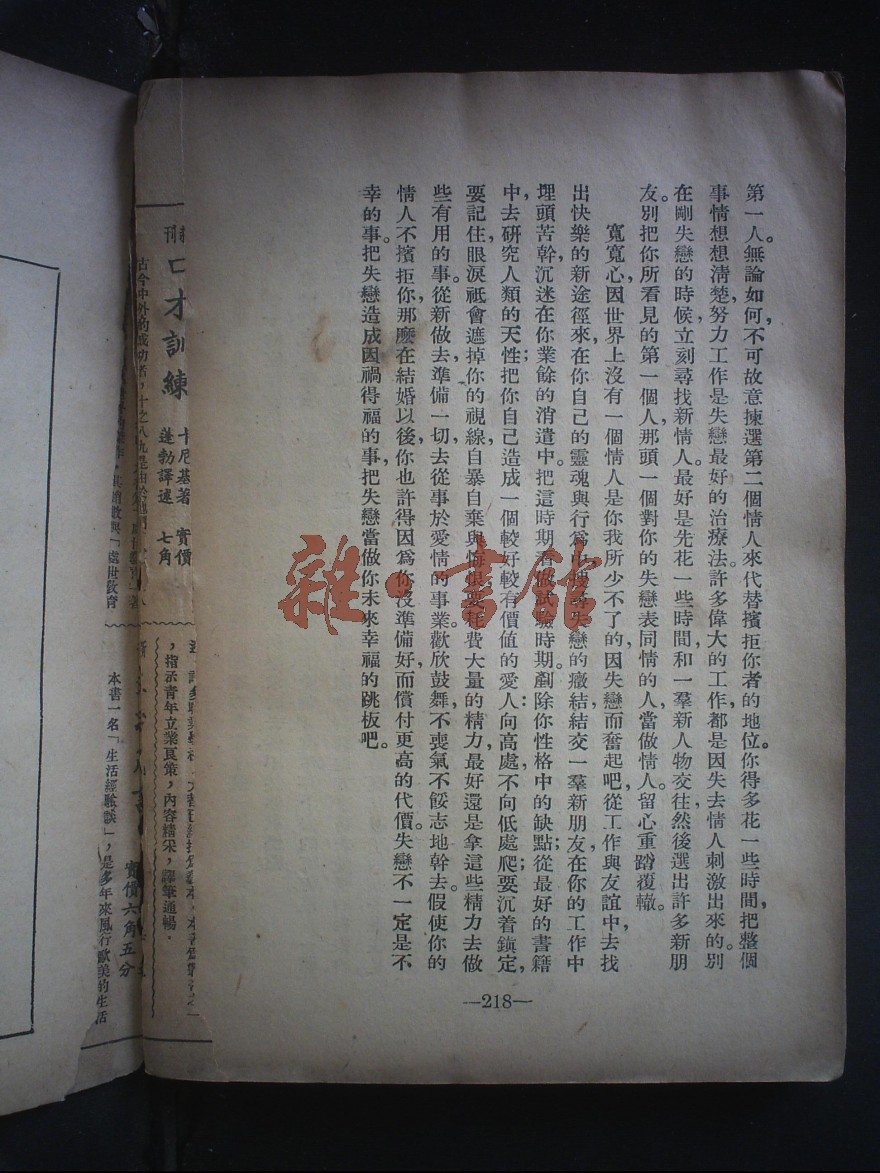 第一人。無論如何，不可故意揀選第二個情人來代替擯拒你者的地位。你得多花一些時間，把整個
事情想想清楚，努力工作是失戀最好的治療法。許多偉大的工作，都是因失去情人刺激出來的。別
在剛失戀的時候，立刻尋找新情人。最好是先花一些時間，和一羣新人物交往，然後選出許多新朋
友。別把你所看見的第一個人，那頭一個對你的失戀表同情的人，當做情人。留心重蹈覆轍。
寬寬心，因世界上沒有一個情人是你我所少不了的，因失戀而奮起吧，從工作與友誼中，去找
出快樂的新途徑來，在你自己的靈魂與行為中搜尋失戀的癥結。結交一羣新朋友，在你的工作中
埋頭苦幹，沉迷在你業餘的消遣中。把這時期看做試驗時期。剷除你性格中的缺點；從最好的書籍
中，去研究人類的天性；把你自己造成一個較好較有價值的愛人：向高處，不向低處爬；要沉着鎮定，
要記住眼淚祇會遮掉你的視線，自暴自棄與悔恨要耗費大量的精力，最好還是拿這些精力去做
些有用的事。從新做去，準備一切，去從事於愛情的事業。歡欣鼓舞，不喪氣不餒志地幹去。假使你的
情人不擯拒你，那麼在結婚以後，你也許得因為你沒準備好而償付更高的代價。失戀不一定是不
幸的事。把失戀造成因禍得福的事，把失戀當做你未來幸福的跳板吧。
—218—
刊
口才訓練
卡尼基著
蓬勃譯述
實價
七角
古今中外的成功者，十之八九是由於他們
，指示青年立業良策，內容精采，譯筆通暢。
實價六角五分
本書一名「生活經驗談」，是多年來風行歐美的生活
雜·書館